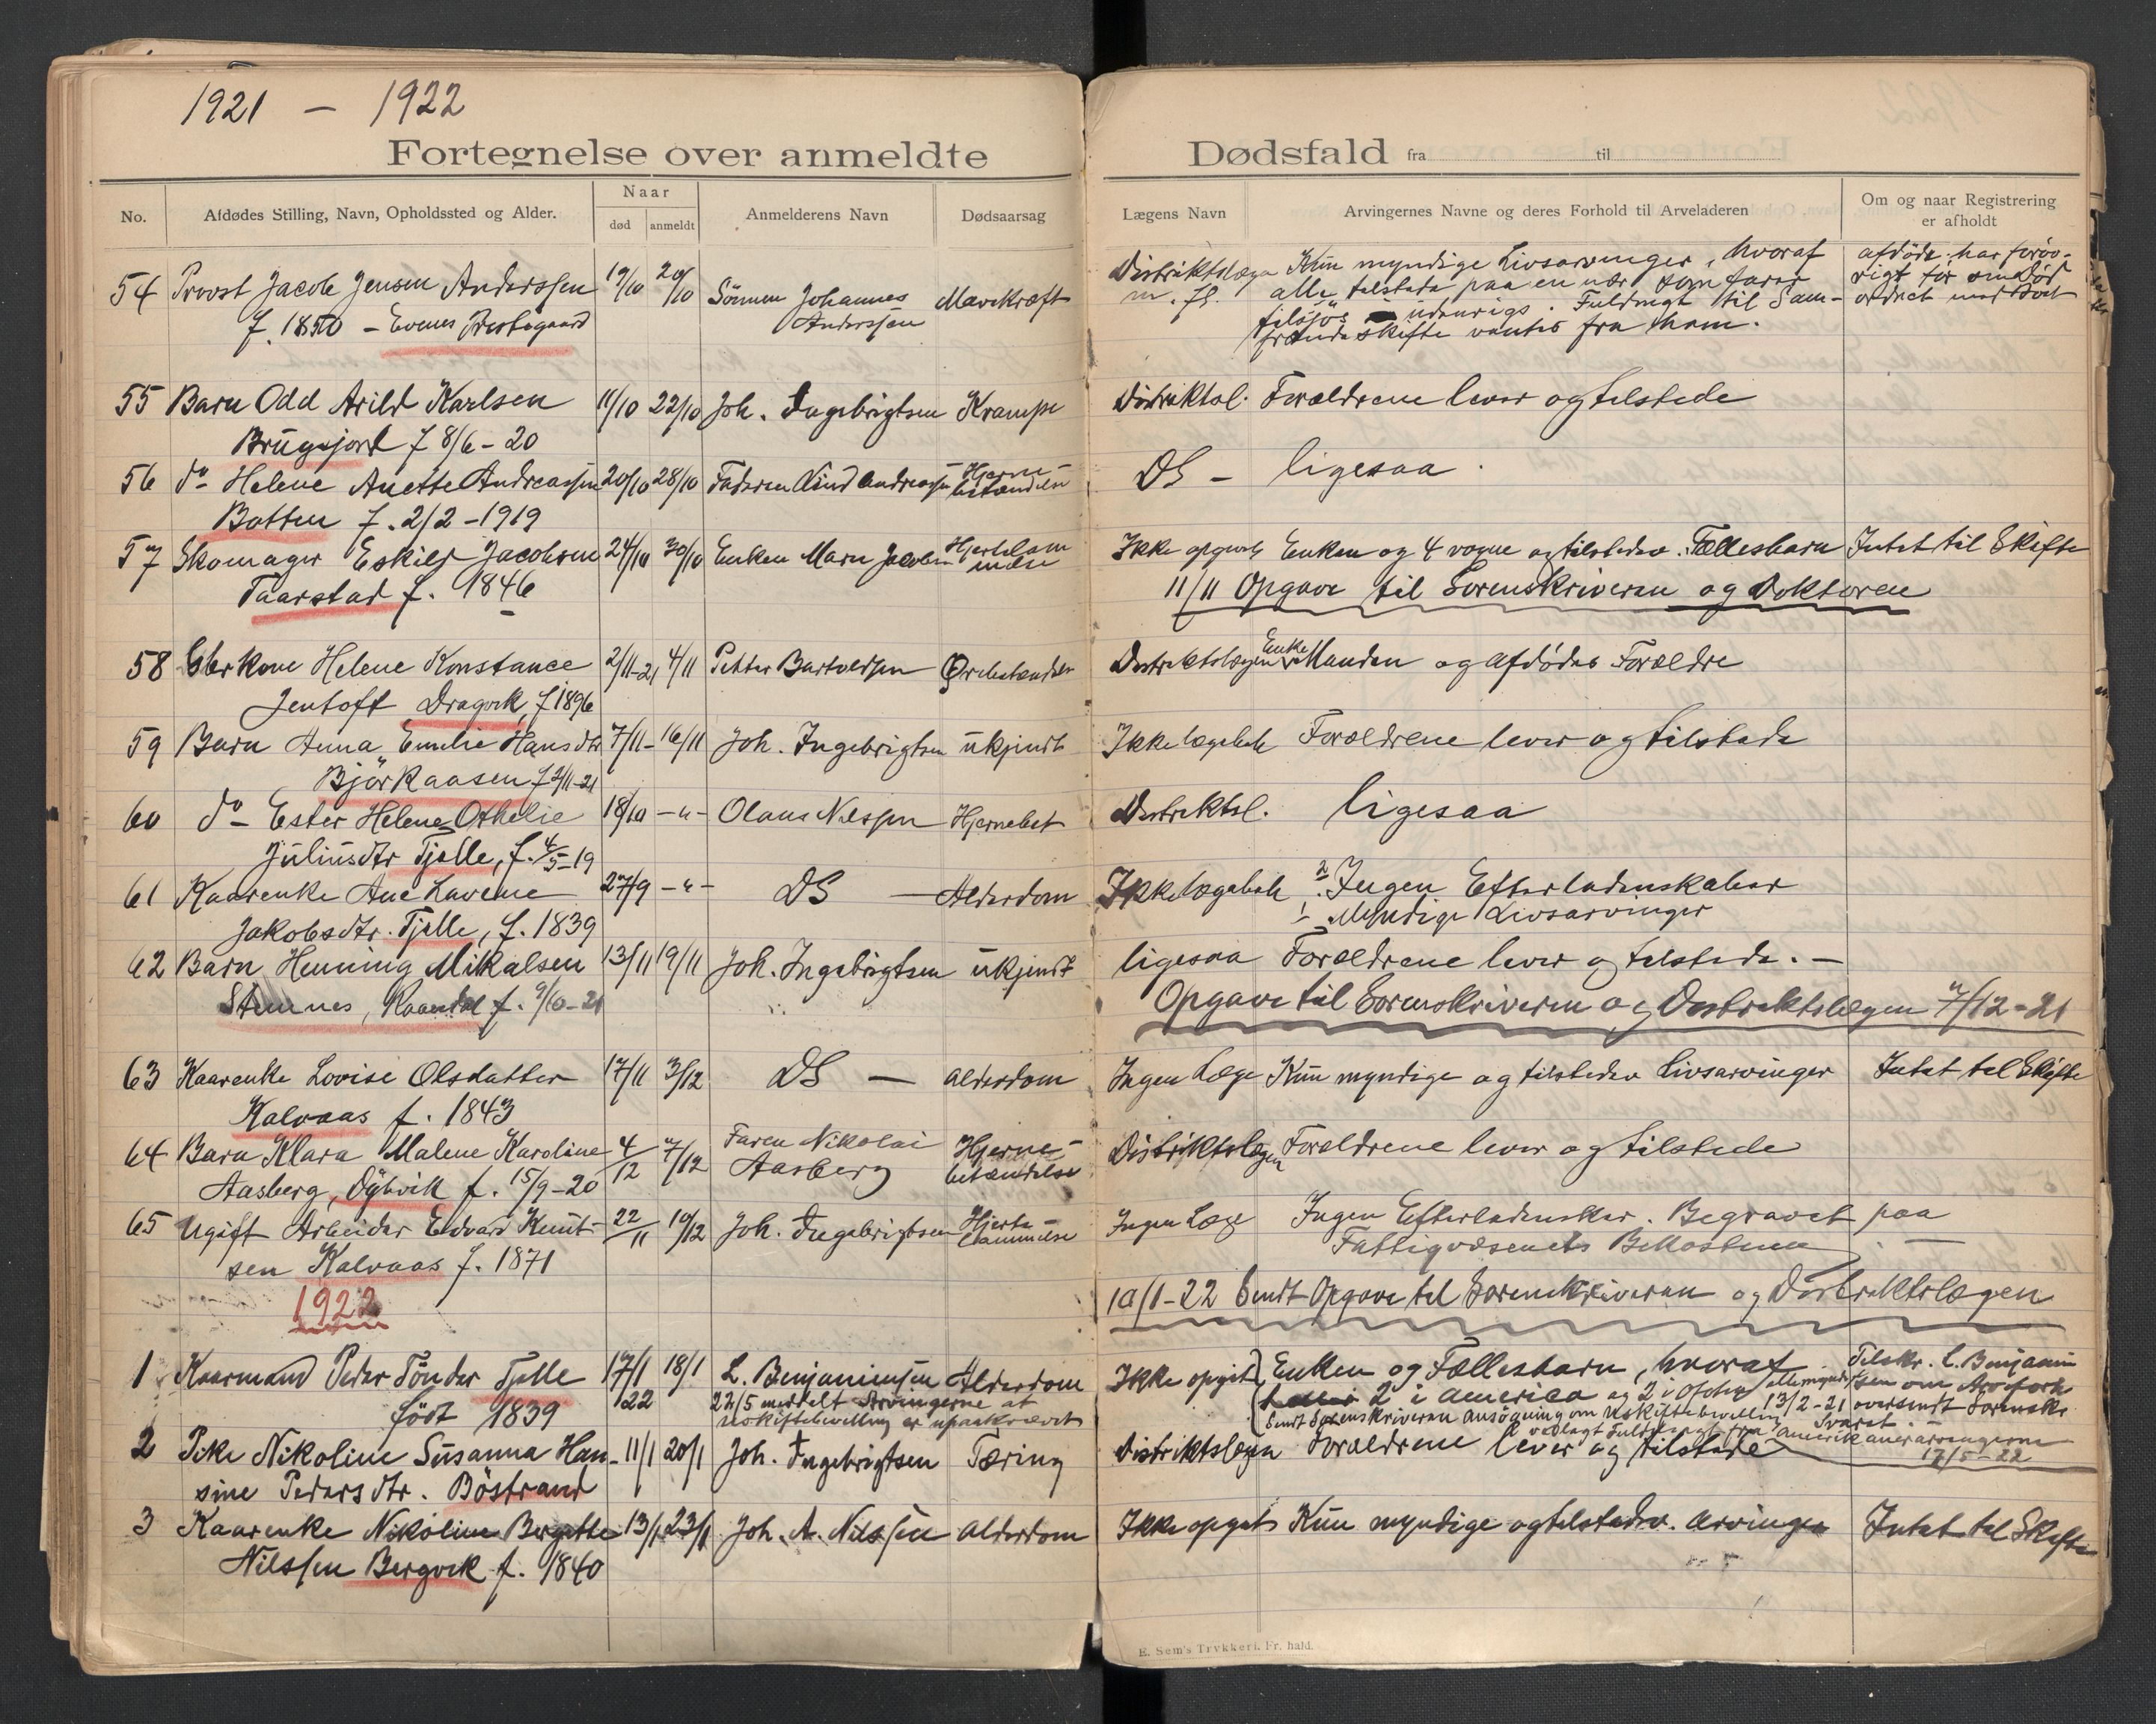 1921 – 1922
Fortegnelse over anmeldte Dødsfald fra til
No. Afdødes Stilling, Navn, Opholdssted og Alder. Naar død anmeldt Anmelderens Navn Dødsaarsag Lægens Navn Arvingernes Navne og deres Forhold til Arveladeren Om og naar Registrering er afholdt
54 Provst Jacob Jensen Anderssen 19/10 20/10 Sönnen Johannes Mavekræft Distriktslægen Kun myndige Livsarvinger, hvoraf
f. 1850 – Evenes Prestegaard Anderssen m. fl. alle tilstede paa en nær som farer
tilsjös udenrigs. Fuldmagt til Sam-
frændeskifte ventes fra ham.
afdöde har forøv-
rigt før sin Död
ordnet med Boet
55 Barn Odd Arild Karlsen 11/10 22/10 Joh. Ingebrigtsen Krampe Distriktsl. Forældrene lever og tilstede
Brugsjord f 8/6 – 20
56 do Helene Anette Andreassen 20/10 28/10 Faderen Knud Andreassen Hjerne- DS – ligesaa
Botten f. 2/2 – 1919 betændelse
57 Skomager Eskild Jacobsen 24/10 30/10 Enken Maren Jacobsen Hjertelam Ikke opgivet Enken og 4 voxne og tilstedev. Fællesbarn Intet til Skifte
Taarstad f. 1846 melse 11/11 Opgave til Sorenskriveren og Doktoren
58 Helene Konstance 2/11-21 4/11 Petter Bartoldsen Distriktslægen Enke Manden og afdødes Forældre
Jentoft Dragvik, f 1896
59 Barn Anna Emelie Hansdtr 7/11 – 16/11 Joh. Ingebrigtsen ukjendt Ikke lægebeh Forældrene lever og tilstede
Björkaasen f 2/11-21
60 do – Ester Helene Othelie 18/10 –"– Olaus Nilssen Hjernebet Distriktsl. ligesaa
Juliusdtr Tjelle, f. 4/5 – 19
61 Kaarenke Ane Lavene 27/9 –"– DS – Alderdom Ikke lægebeh 2. Ingen Efterladenskaber
Jakobsdtr. Tjelle, f. 1839 1. Myndige Livsarvinger
62 Barn Henning Mikalsen 13/11 19/11 Joh. Ingebrigtsen ukjendt ligesaa Forældrene lever og tilstede. –
Stunnes, f. 9/10 – 21 Opgave til Sorenskriveren og Distriktslægen 7/12 – 21
63 Kaarenke Lovise Olsdatter 17/11 3/12 DS – alderdom Ingen Læge Kun myndige og tilstedev Livsarvinger Intet til Skifte
Kalvaas f. 1843
64 Barn Klara Malene Karoline 4/12 7/12 Faren Nikolai Hjerne- Distriktslægen Forældrene lever og tilstede
Aasberg, Dybvik f. 15/9 – 20 Aasberg betændelse
65 Ugift Arbeider Edvard Knut- 22/11 10/12 Joh. Ingebrigtsen Hjerte- Ingen Læge Ingen Efterladensker. Begravet paa
sen Kalvaas f. 1871 lammelse Fattigvæsenets Bekostning. –
1922
10/1-22 Sendt Opgave til Sorenskriveren og Distriktslægen
1 Kaarmand Peder Tönder Tjelle 17/1 22 18/1 L. Benjaminsen Alderdom Ikke opgit Enken og Fællesbarn, hvoraf
født 1839 22/5 meddelt Arvingerne at 2 i America og 2 i Ofoten alle myndige
uskiftebevilling er upaakrævet Sendt Sorenskriveren Ansögning om Uskiftebevilling 13/2 – 21
vedlagt Fuldmagt fra Amerikanerarvingerne
Tilskr. L. Benjamin
sen om
oversendt Sorenskr
Svaret
17/5 – 22
2 Pike Nikoline Susanna Han- 11/1 20/1 Joh. Ingebrigtsen Tæring Distriktslægen Forældrene lever og tilstede
sine Pedersdtr. Böstrand
3 Kaarenke Nikoline Bergette 13/1 23/1 Joh. A. Nilssen alderdom Ikke opgit Kun myndige og tilstedev. Arvinger Intet til Skifte
Nilssen Bergvik f. 1840
E. Sem's Trykkeri. Fr. hald.